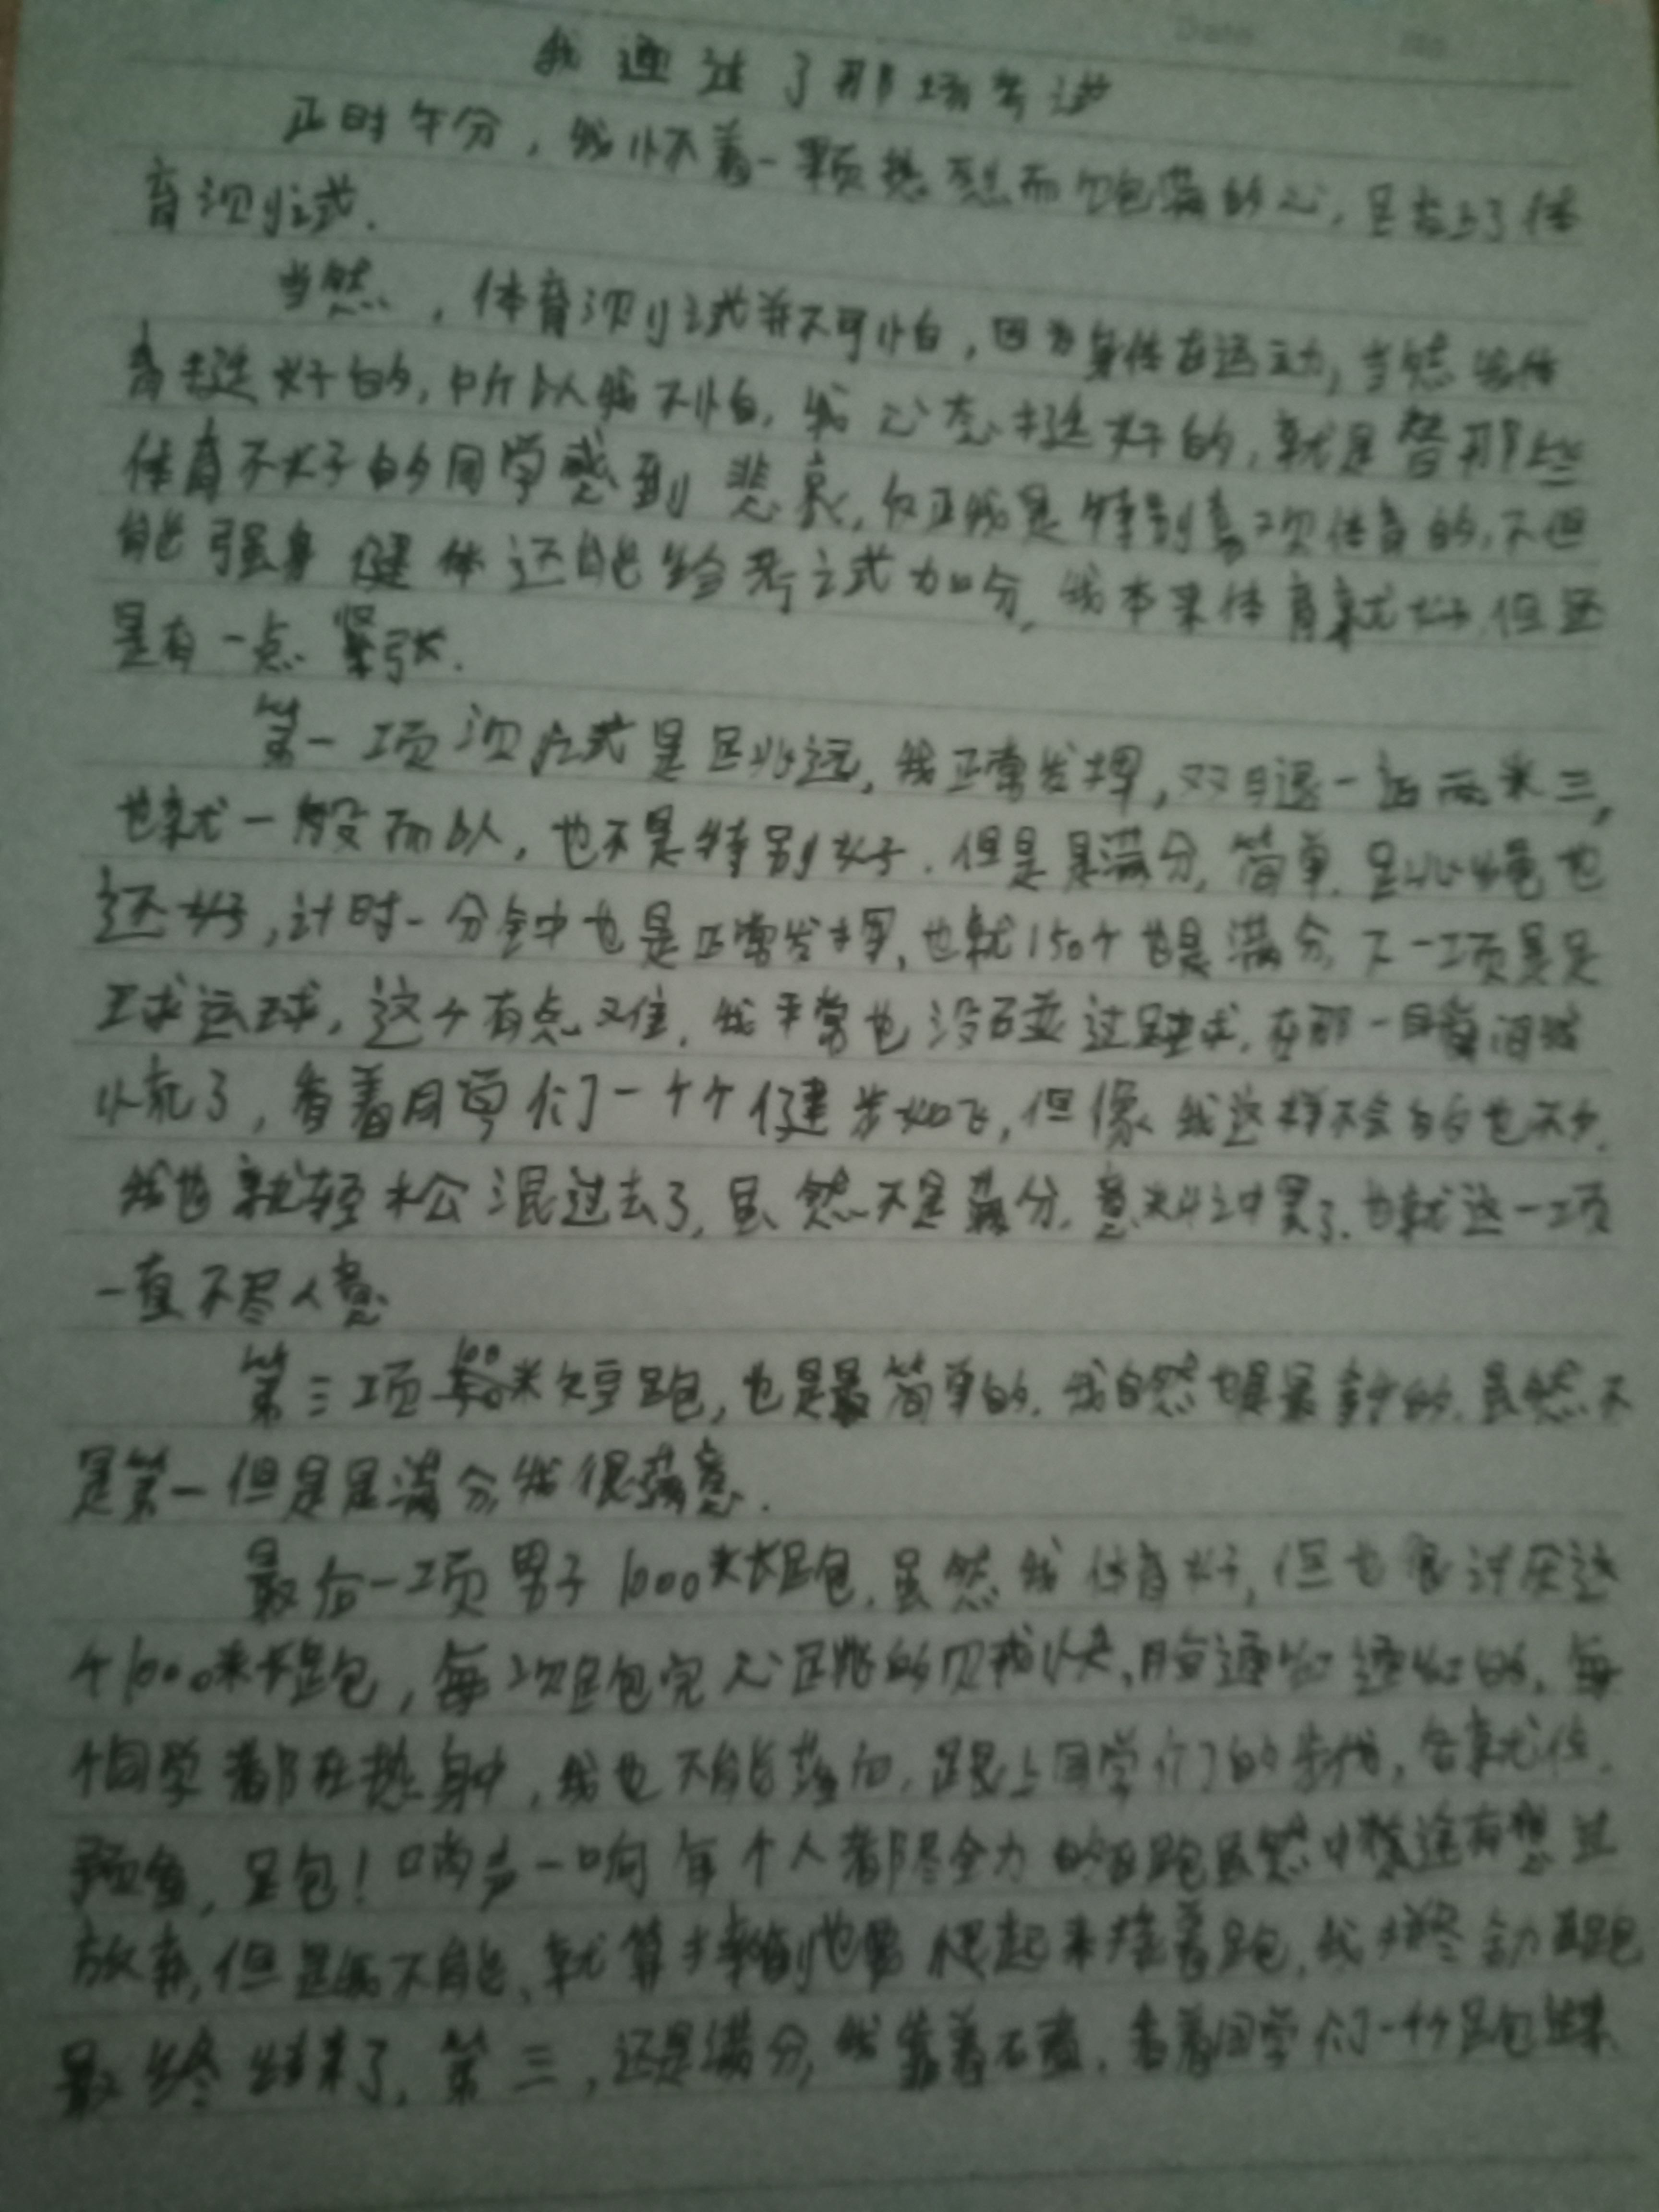 我通过了那场考试
正时午分，我怀着一颗热烈而饱满的心，踏上了体
育测试.
当然，体育测试并不可怕，因为身体在运动，当然我体
育挺好的，所以我不怕，我心态挺好的，就是替那些
体育不好的同学感到悲哀，反正我是特别喜欢体育的，不但
能强身健体还能给考试加分，我本来体育就好，但还
是有一点紧张.
第一项测试是跳远，我正常发挥，双腿一迈两米三，
也就一般而以，也不是特别好.但是是满分，简单.跳绳也
还好，计时一分钟也是正常发挥，也就150个也是满分，下一项是足
球运球，这个有点难，我平常也没碰过足球，在那一瞬间我
慌了，看着同学们一个个健步如飞，但像我这样不会的也不少.
我也就轻松混过去了，虽然不是满分.意料之中罢了.也就这一项
一直不尽人意
第三项100米短跑，也是最简单的.我自然也是最拿手的.虽然不
是第一但是是满分，我很满意.
最后一项男子1000米长跑.虽然我体育好，但也很讨厌这
个1000米长跑，每次跑完心跳的贼快，脸通红通红的，每
个同学都在热身中，我也不能落后，跟上同学们的步伐，各就位.
预备，跑！哨声一响每个人都尽全力的跑虽然中途有想过
放弃，但是我不能，就算摔倒也要爬起来接着跑，我拼尽全力
最终结束了，第三，还是满分，我靠着石壁，看着同学们一个个跑过来